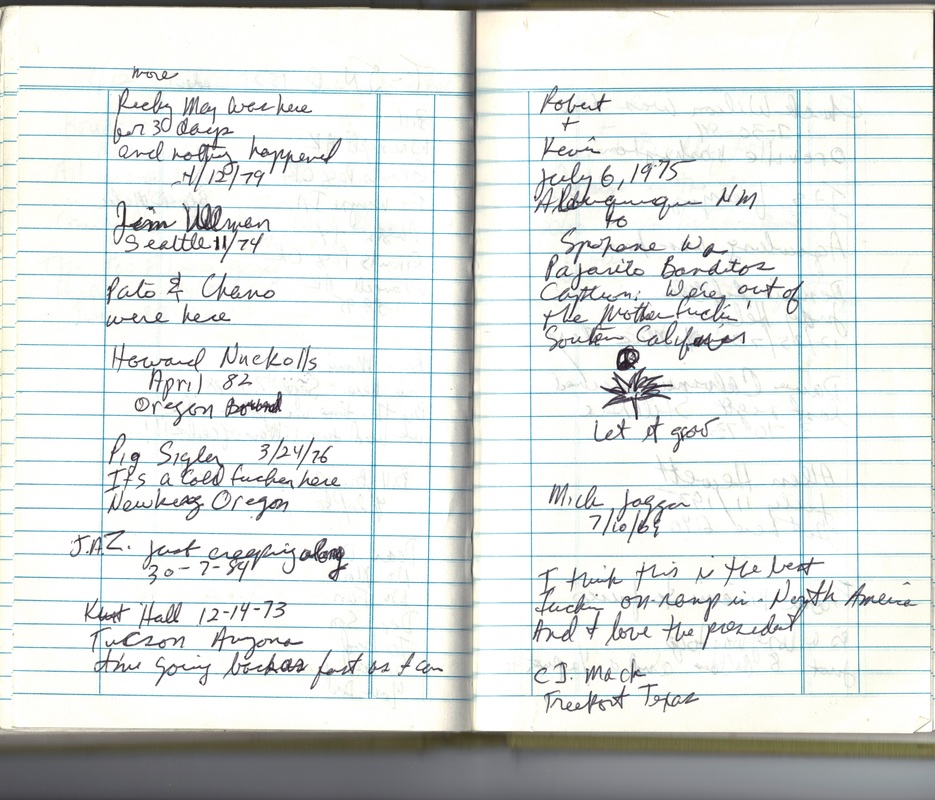 more
Ricky May was here
for 30 days
and nothing happened
4/12/79
Jim Ullman
Seattle 11/74
Pato & Chano
were here
Howard Nuckolls
April 82
Oregon Bound
Pig Sigler 3/24/76
It's a Cold fucker here
Newberg Oregon
J.A.Z. just creeping along
30-7-84
Kurt Hall 12-14-73
Tucson Arizona
going back as fast as I can
Robert
+
Kevin
July 6, 1975
Albuquerque NM
to
Spokane Wa.
Pajarito Banditos
Caption: We're out of
the Motherfuckin
Southern California
Let it grow
Mick Jagger
7/10/69
I think this is the best
fuckin on-ramp in North America
And I love the president
C.J. Mack
Freeport Texas